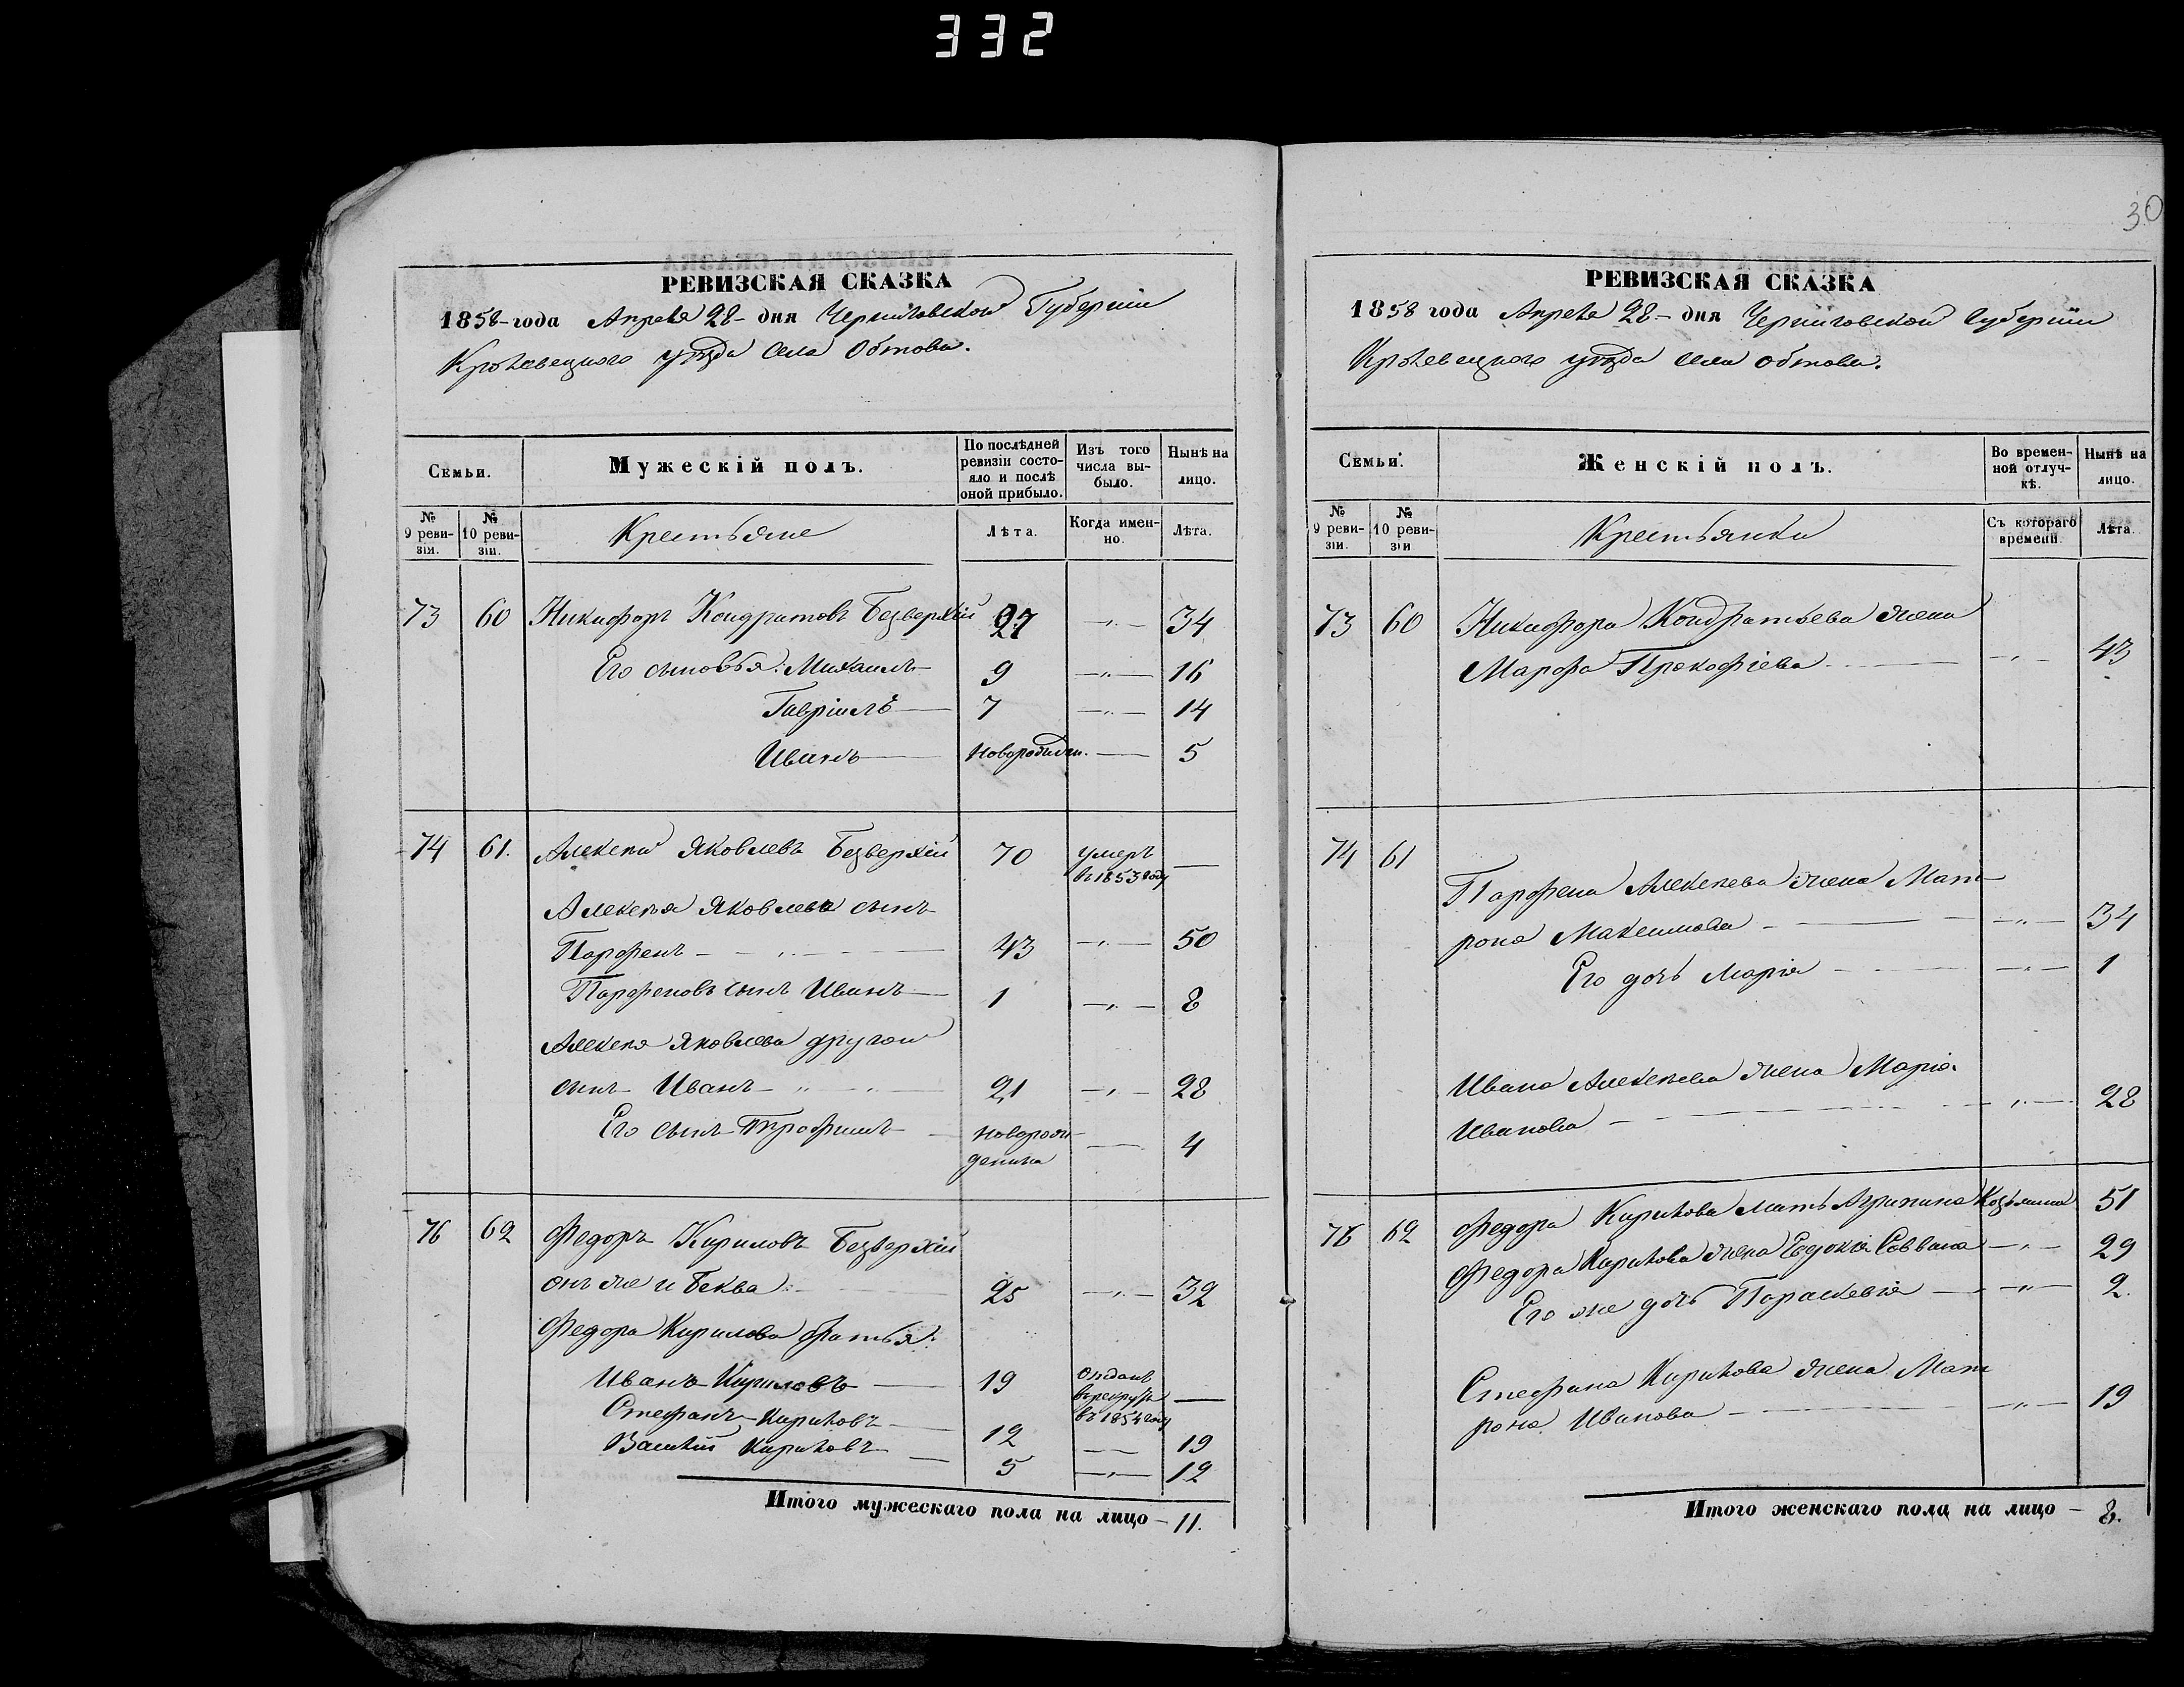 332
РЕВИЗСКАЯ СКАЗКА
1858-года Апреля 28- дня Черниговской Губернiи
Кролевецкого уѣзда Села Обтова.
Семьи.
Мужескiй полъ.
По послѣдней ревизiи состояло и послѣ оной прибыло.
Изъ того числа выбыло.
Нынѣ на лицо.
№ 9 ревизiи.
№ 10 ревизiи.
Крестьяне
Лѣта.
Когда именно.
Лѣта.
73 60 Никифоръ Кондратовъ Безверхiй 27 —"— 34
Его сыновья: Михаилъ — 9 —"— 16
Гаврiилъ — 7 —"— 14
Иванъ — Новорожден. — 5
74 61. Алексѣй Яковлевъ Безверхiй 70 умеръ —
въ 1853 году
Алексѣя Яковлева сынъ
Парфенъ — " — 43 —"— 50
Парфеновъ сынъ Иванъ — 1 —"— 8
Алексѣя Яковлева другой
сынъ Иванъ — " — " — 21 —"— 28
Его сынъ Трофимъ — новорож- — 4
денна
76 62 Федоръ Кириловъ Безверхiй
онъ же и Беква: — 25 —"— 32
Федора Кирилова братья:
Иванъ Кириловъ — 19 отданъ —
въ рекруты
въ 1854 году
Стефанъ Кириловъ — 12 — 19
Василiй Кириловъ — 5 —"— 12
Итого мужескаго пола на лицо — 11.
30
РЕВИЗСКАЯ СКАЗКА
1858 года Апреля 28- дня Черниговской Губернiи
Кролевецкого уѣзда села Обтова.
Семьи.
Женскiй полъ.
Во временной отлучкѣ.
Нынѣ на лицо.
№ 9 ревизiи.
№ 10 ревизiи
Крестьянки
Съ котораго времени.
Лѣта.
73 60 Никифора Кондратьева жена
Марфа Прокофiева — —"— 43
74 61
Парфена Алексѣева жена Мат-
рона Максимова — —"— 34
Его дочь Марiя — —"— 1
Ивана Алексѣева жена Марiя
Иванова — —"— 28
76 62 Федора Кирилова мать Агрипина Козьмина 51
Федора Кирилова жена Евдокiя Саввина —"— 29
Его же дочь Параскевiя — —"— 2.
Стефана Кирилова жена Мат
рона Иванова — —"— 19
Итого женскаго пола на лицо — 8.